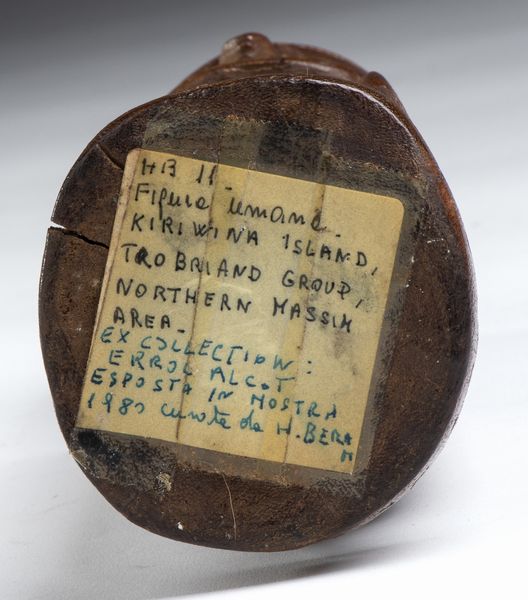 HB 11
Figura umana.
KIRIWINA ISLAND,
TROBRIAND GROUP,
NORTHERN MASSIM
AREA.
EX COLLECTION:
ERROL ALCOT
ESPOSTA IN MOSTRA
1980 curata da H. BERA
N